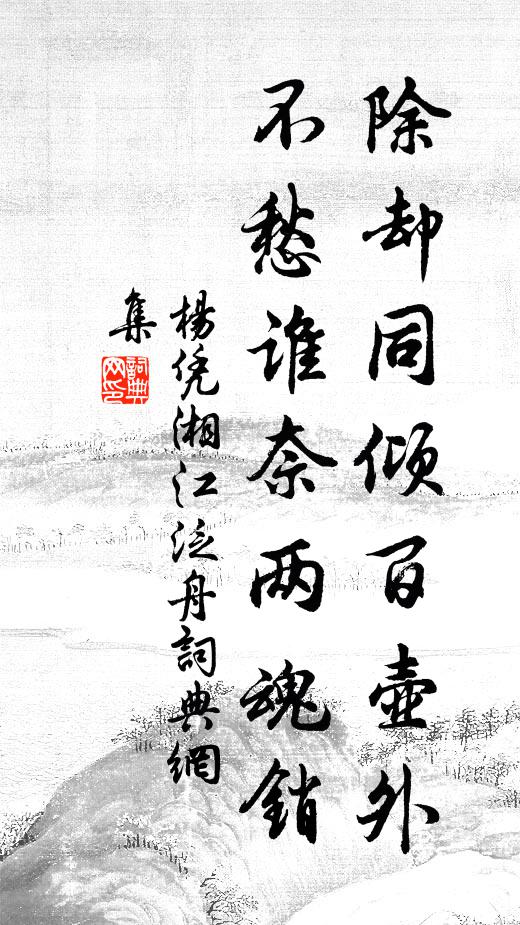 除却同倾百壶外
不愁谁奈两魂销
杨凭湘江泛舟詞典網
集
詞典網印